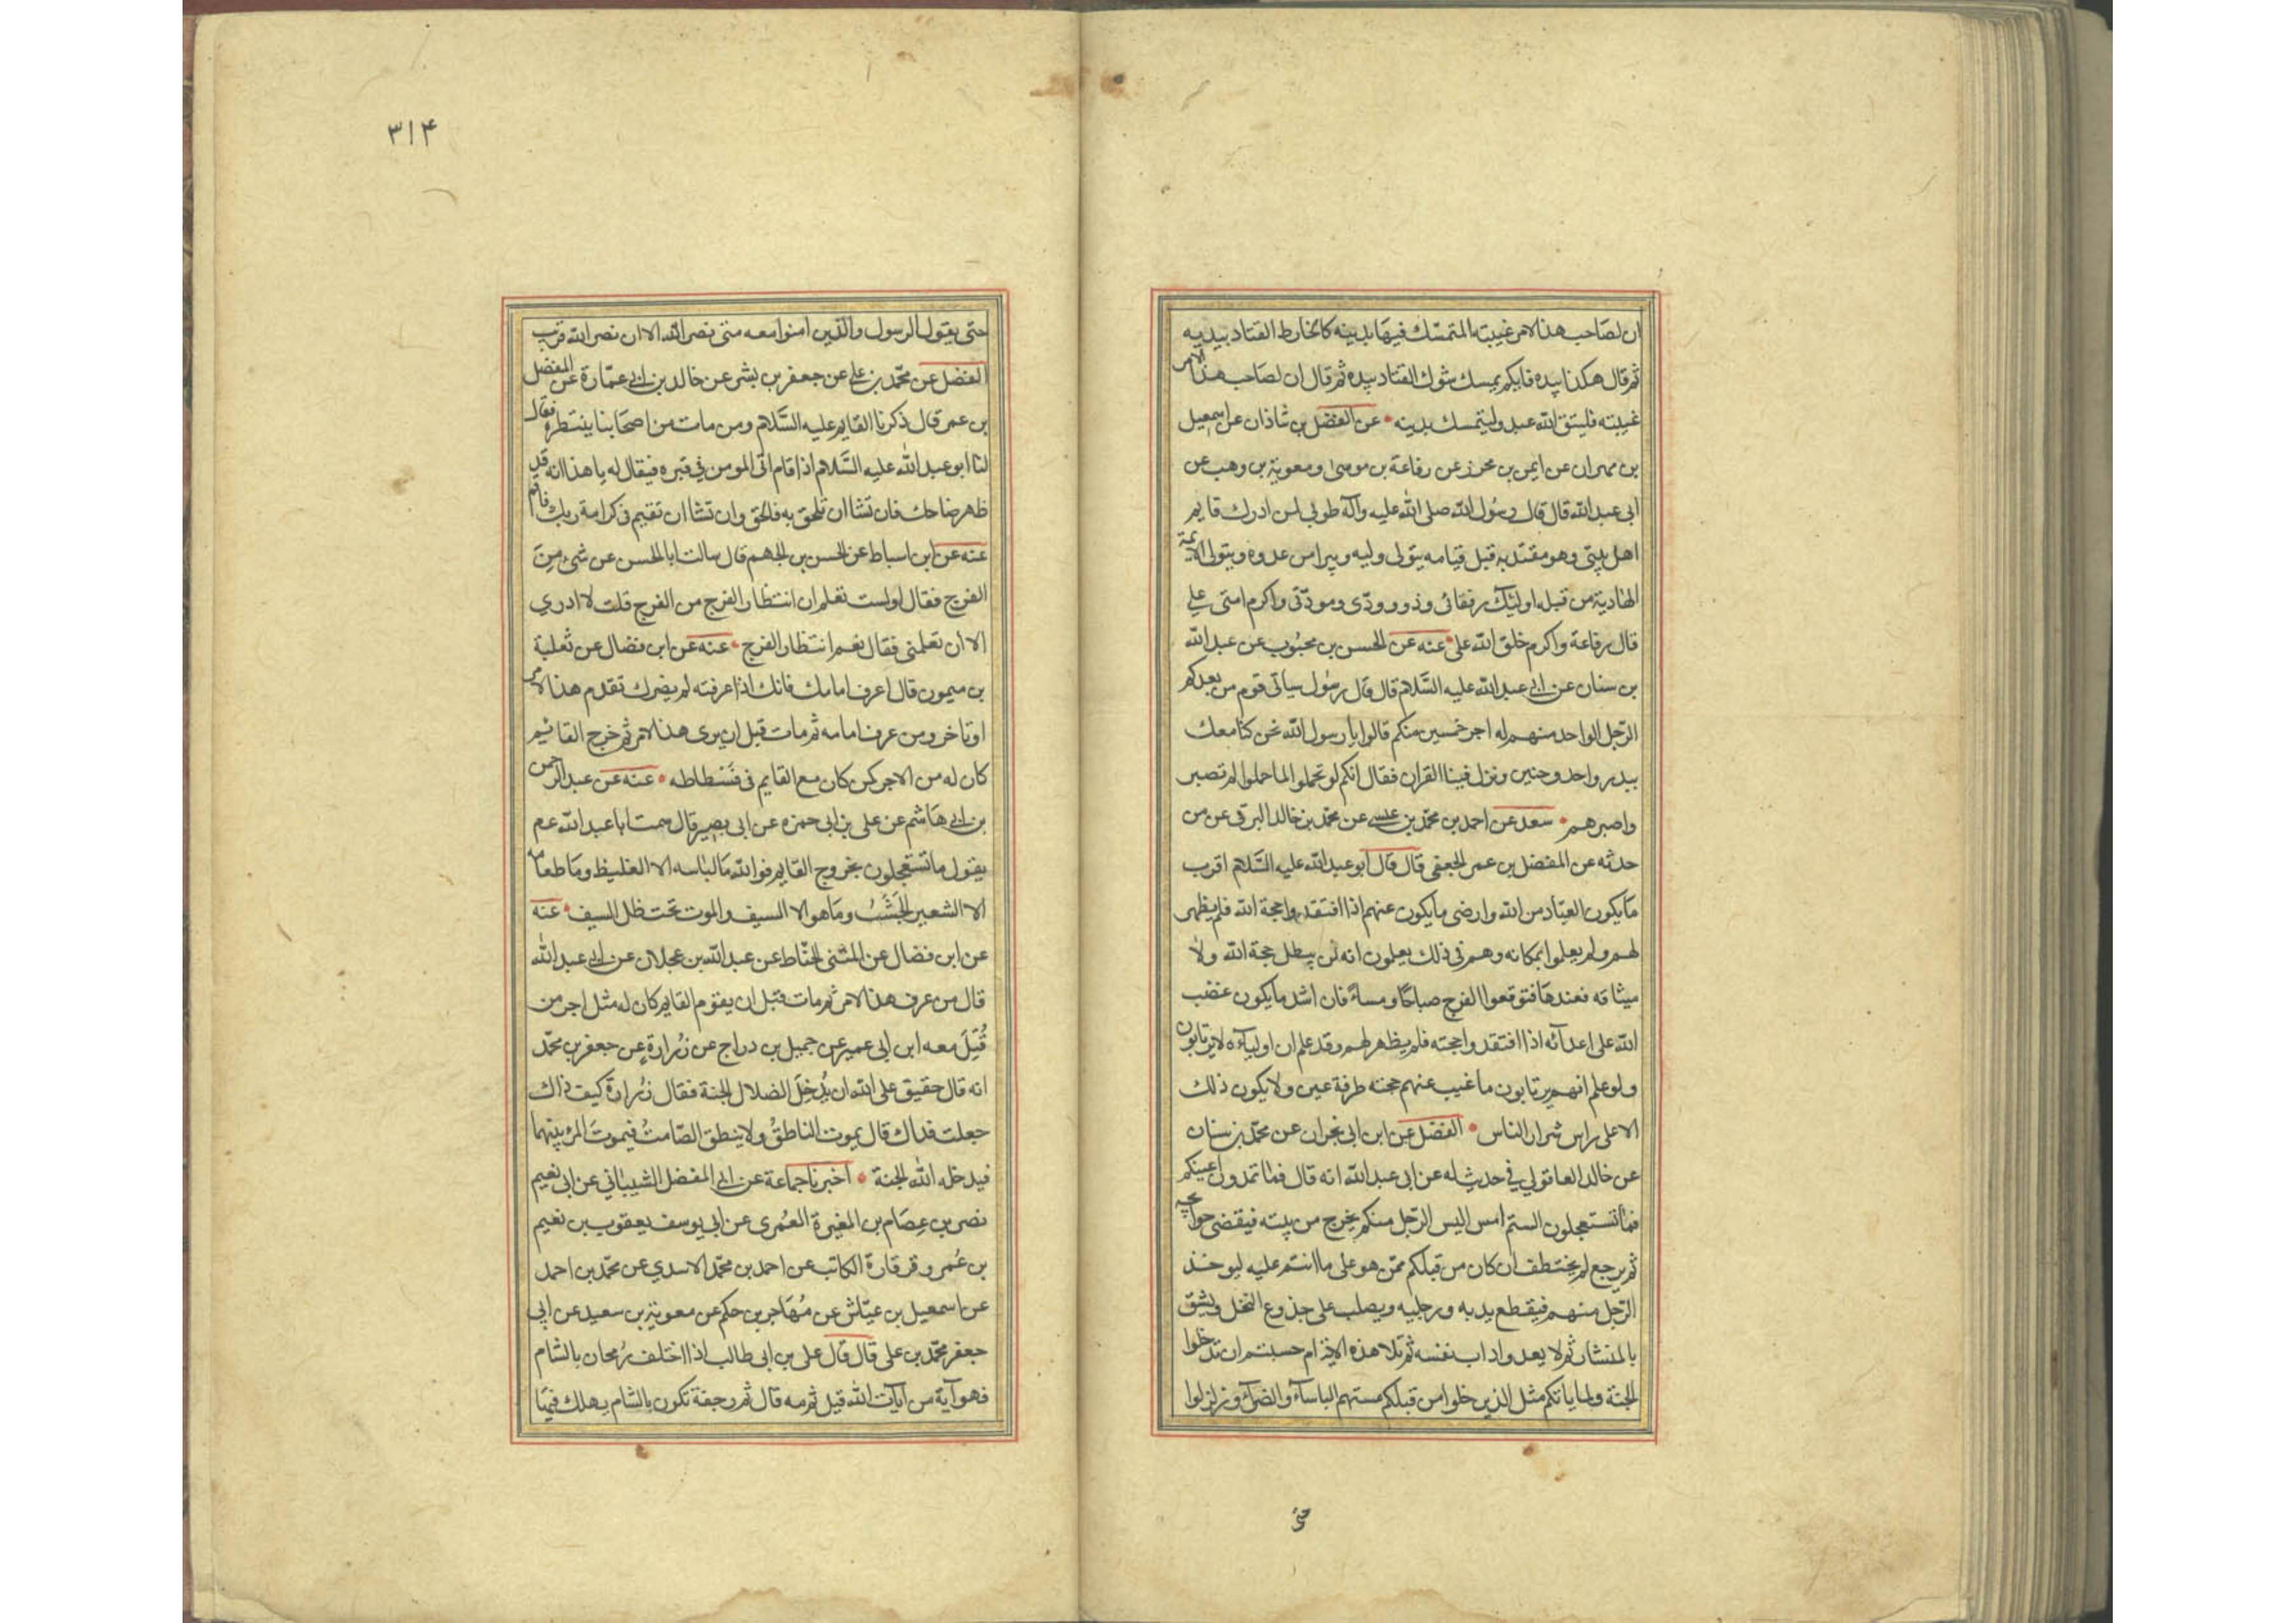 ان لصاحب هذا الامر غيبته المتمسك فيها بدينه كالخارط القتاد بيديه
ثم قال هكذا بيده فايكم يمسك شوك القتاد بيده ثم قال ان لصاحب هذا الامر
غيبته فليتق الله عبد وليتمسك بدينه • عن الفضل بن شاذان عن اسمعيل
بن مهران عن ايمن بن محرز عن رفاعة بن موسى ومعوية بن وهب عن
ابى عبد الله قال قال رسول الله صلى الله عليه وآله طوبى لمن ادرك قايم
اهل بيتى وهو مقتد به قبل قيامه يتولى وليه ويبرا من عدوه ويتولى الائمة
الهادية من قبله اولئك رفقائى وذوو ودى ومودتى واكرم امتى على
قال رفاعة واكرم خلق الله على • عنه عن الحسن بن محبوب عن عبد الله
بن سنان عن ابى عبد الله عليه السلام قال قال رسول سياتى قوم من بعدكم
الرجل الواحد منهم له اجر خمسين منكم قالوا يا رسول الله نحن كنا معك
ببدر واحد وحنين ونزل فينا القران فقال انكم لو تحملوا لما حملوا لم تصبر
واصبرهم • سعد عن احمد بن محمد بن عيسى عن محمد بن خالد البرقى عن من
حدثه عن المفضل بن عمر الجعفى قال قال ابو عبد الله عليه السلام اقرب
ما يكون العباد من الله وارضى ما يكون عنهم اذا افتقدوا حجة الله فلم يظهر
لهم ولم يعلموا بمكانه وهم فى ذلك يعلمون انه لن يبطل حجة الله ولا
ميثاقه فعندها فتوقعوا الفرج صباحا ومساء فان اشد ما يكون غضب
الله على اعدآئه اذا افتقدوا حجته فلم يظهر لهم وقد علم ان اوليآءه لا يرتابون
ولو علم انهم يرتابون ما غيب عنهم حجته طرفة عين ولا يكون ذلك
الا على راس شرار الناس • الفضل عن ابن ابى نجران عن محمد بن سنان
عن خالد العاقولي في حديث له عن ابى عبد الله انه قال فما تمدون اعينكم
فما تستعجلون الستم امس اليس الرجل منكم يخرج من بيته فيقضى حوائجه
ثم يرجع لم يختطف ان كان من قبلكم ممن هو على ما انتم عليه ليوخذ
الرجل منهم فيقطع يديه ورجليه ويصلب على جذوع النخل وينشق
بالمنشار ثم لا يعدو اداب نفسه ثم تلا هذه الاية ام حسبتم ان تدخلوا
الجنة ولما ياتكم مثل الذين خلوا من قبلكم مستهم الباسآء والضرآء وزلزلوا
حتى
٣١۴
حتى يقول الرسول والذين امنوا معه متى نصر الله الا ان نصر الله قريب
الفضل عن محمد بن على عن جعفر بن بشير عن خالد بن ابى عمارة عن المفضل
بن عمر قال ذكرنا القايم عليه السلام ومن مات من اصحابنا ينتظره فقال
لنا ابو عبد الله عليه السلام اذا قام اتى المومن في قبره فيقال له يا هذا انه قد
ظهر صاحبك فان تشا ان تلحق به فالحق وان تشا ان تقيم فى كرامة ربك فاقم
عنه عن ابن اسباط عن الحسن بن الجهم قال سالت ابا الحسن عن شىء من
الفرج فقال اولست تعلم ان انتظار الفرج من الفرج قلت لا ادري
الا ان تعلمنى فقال نعم انتظار الفرج • عنه عن ابن فضال عن ثعلبة
بن ميمون قال اعرف امامك فانك اذا عرفته لم يضرك تقدم هذا الامر
او تاخر ومن عرف امامه ثم مات قبل ان يرى هذا الامر ثم خرج القائيم
كان له من الاجر كمن كان مع القايم فى فسطاطه • عنه عن عبد الرحمن
بن ابى هاشم عن على بن ابى حمزه عن ابى بصير قال سمت ابا عبد الله عم
يقول ما تستعجلون بخروج القايم فوالله ما لباسه الا الغليظ وما طعامه
الا الشعير الجشب وما هو الا السيف والموت تحت ظل السيف • عنه
عن ابن فضال عن المثنى الحناط عن عبد الله بن عجلان عن ابى عبد الله
قال من عرف هذا الامر ثم مات قبل ان يقوم القايم كان له مثل اجر من
قُتِلَ معه ابن ابى عمير عن جميل بن دراج عن زُرارة عن جعفر بن محمد
انه قال حقيق على الله ان يُدخِلَ الضلال الجنة فقال زُرارة كيف ذاك
جعلت فداك قال يموت الناطقُ ولا ينطق الصامتُ فيموتَ المرء بينهما
فيدخله الله الجنة • اخبرنا جماعة عن ابى المفضل الشيبانى عن ابى نعيم
نصر بن عِصام بن المغيرة العُمرى عن ابى يوسف يعقوب بن نعيم
بن عُمر وقرقارة الكاتب عن احمد بن محمد الاسدي عن محمد بن احمد
عن اسمعيل بن عيّاش عن مُهاجر بن حكم عن معوية بن سعيد عن ابى
جعفر محمد بن على قال قال على بن ابى طالب اذا اختلف رُمحان بالشام
فهو آية من آيات الله قيل ثم مه قال ثم رجفة تكون بالشام يهلك فيها